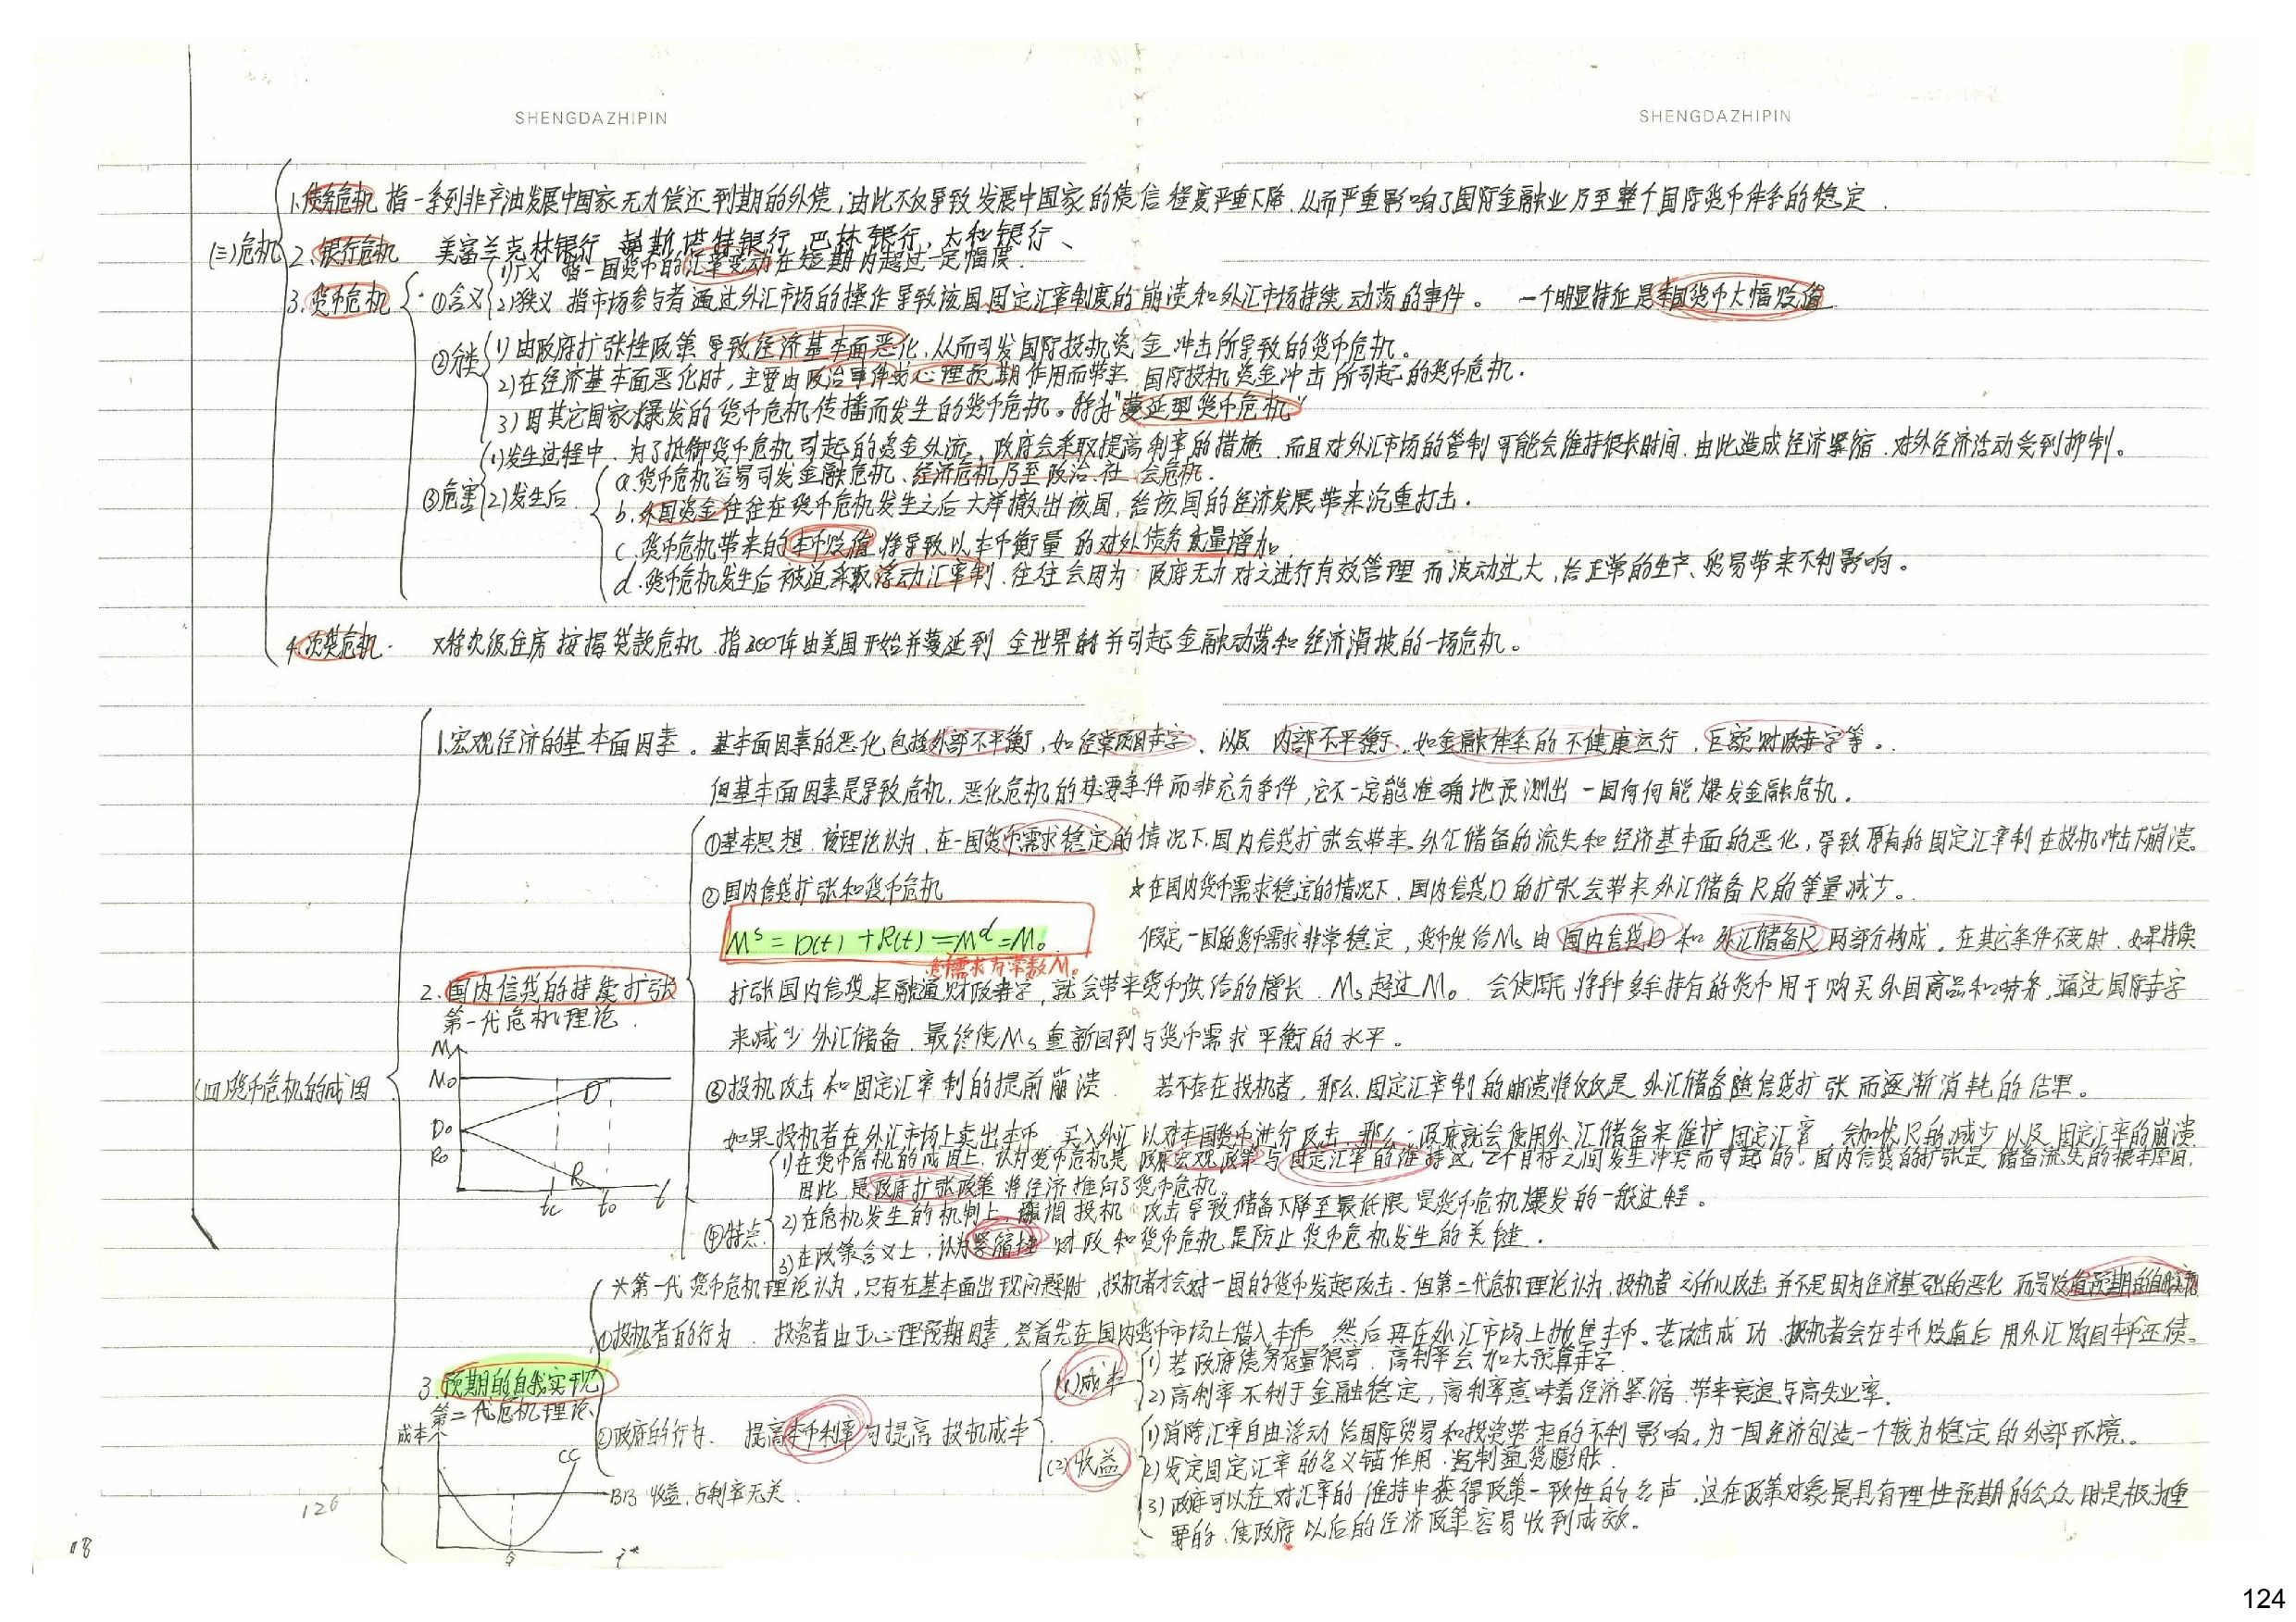 SHENGDAZHIPIN
SHENGDAZHIPIN
(三)危机
1.债务危机 指一系列非产油发展中国家无力偿还到期的外债,由此不仅导致发展中国家的债信程度严重下降,从而严重影响了国际金融业乃至整个国际货币体系的稳定.
2.银行危机 美富兰克林银行 赫斯塔特银行、巴林银行、大和银行、
3.货币危机
①含义
1)广义 指一国货币的汇率变动在短期内超过一定幅度.
2)狭义 指市场参与者通过外汇市场的操作导致该国固定汇率制度的崩溃和外汇市场持续动荡的事件。 一个明显特征是本国货币大幅贬值
②分类
1)由政府扩张性政策导致经济基本面恶化,从而引发国际投机资金冲击所导致的货币危机。
2)在经济基本面恶化时,主要由政治事件或心理预期作用而带来 国际投机资金冲击所引起的货币危机.
3)因其它国家爆发的货币危机传播而发生的货币危机。称为"蔓延型货币危机"
③危害
(1)发生过程中.为了抵御货币危机引起的资金外流,政府会采取提高利率的措施,而且对外汇市场的管制可能会维持很长时间.由此造成经济紧缩.对外经济活动受到抑制。
2)发生后
a.货币危机容易引发金融危机、经济危机乃至政治、社会危机.
b.外国资金往往在货币危机发生之后大举撤出该国,给该国的经济发展带来沉重打击.
c.货币危机带来的本币贬值将导致以本币衡量的对外债务负量增加.
d.货币危机发生后被迫采取浮动汇率制,往往会因为政府无力对之进行有效管理而波动过大,给正常的生产、贸易带来不利影响。
4.次贷危机. 又称次级住房按揭贷款危机 指2007年由美国开始并蔓延到全世界的并引起金融动荡和经济滑坡的一场危机。
(四)货币危机的成因
1.宏观经济的基本面因素。基本面因素的恶化包括外部不平衡,如经常项目赤字、以及 内部不平衡,如金融体系的不健康运行,巨额财政赤字等。
但基本面因素是导致危机,恶化危机的必要条件而非充分条件,它不一定能准确地预测出一国何何能爆发金融危机.
2.国内信贷的持续扩张
第一代危机理论.
①基本思想.该理论认为,在一国货币需求稳定的情况下.国内信贷扩张会带来外汇储备的流失和经济基本面的恶化,导致原有的固定汇率制在投机冲击下崩溃。
②国内信贷扩张和货币危机 ☆在国内货币需求稳定的情况下.国内信贷D的扩张会带来外汇储备R的等量减少。
Mˢ=D(t)+R(t)=Mᵈ=M₀.
货币需求为常数M₀
假定一国的货币需求非常稳定,货币供给Ms由国内信贷D和外汇储备R两部分构成,在其它条件不变时.如果持续
扩张国内信贷来融通财政赤字,就会带来货币供给的增长.Ms超过M₀.会使居民将种多余持有的货币用于购买外国商品和劳务,通过国际赤字
来减少外汇储备.最终使Ms重新回到与货币需求平衡的水平。
③投机攻击和固定汇率制的提前崩溃. 若不存在投机者,那么.固定汇率制的崩溃将仅仅是外汇储备随信贷扩张而逐渐消耗的结果。
如果投机者在外汇市场上卖出本币,买入外汇以对本国货币进行攻击,那么:政府就会使用外汇储备来维护固定汇率,会加快R的减少以及固定汇率的崩溃
④特点.
1)在货币危机的成因上,认为货币危机是政府宏观政策与固定汇率的维持这2个目标之间发生冲突而引起的。国内信贷的扩张是储备流失的根本原因.
因此,是政府扩张政策将经济推向了货币危机
2)在危机发生的机制上,强调投机攻击导致储备下降至最低限是货币危机爆发的一般过程。
3)在政策含义上,认为紧缩性财政和货币危机是防止货币危机发生的关键.
M
M₀
D
D₀
R₀
R
tc t₀ t
3.预期的自我实现
第二代危机理论
☆第一代货币危机理论认为,只有在基本面出现问题时,投机者才会对一国的货币发起攻击.但第二代危机理论认为,投机者之所以攻击并不是因为经济基础的恶化
①投机者的行为. 投资者由于心理预期因素,会首先在国内货币市场上借入本币,然后再在外汇市场上抛售本币。若攻击成功.投机者会在本币贬值后用外汇购回本币还债。
②政府的行为. 提高本币利率可提高投机成本
(1)成本
1)若政府债务存量很高.高利率会加大预算赤字.
2)高利率不利于金融稳定,高利率意味着经济紧缩.带来衰退与高失业率.
(2)收益
1)消除汇率自由浮动给国际贸易和投资带来的不利影响,为一国经济创造一个较为稳定的外部环境。
2)发定固定汇率的名义锚作用.遏制通货膨胀.
3)政府可以在对汇率的维持中获得政策一致性的名声.这在政策对象是具有理性预期的公众时是极为重
要的.使政府以后的经济政策容易收到成效。
成本
CC
BB 收益,与利率无关.
i*
126
124